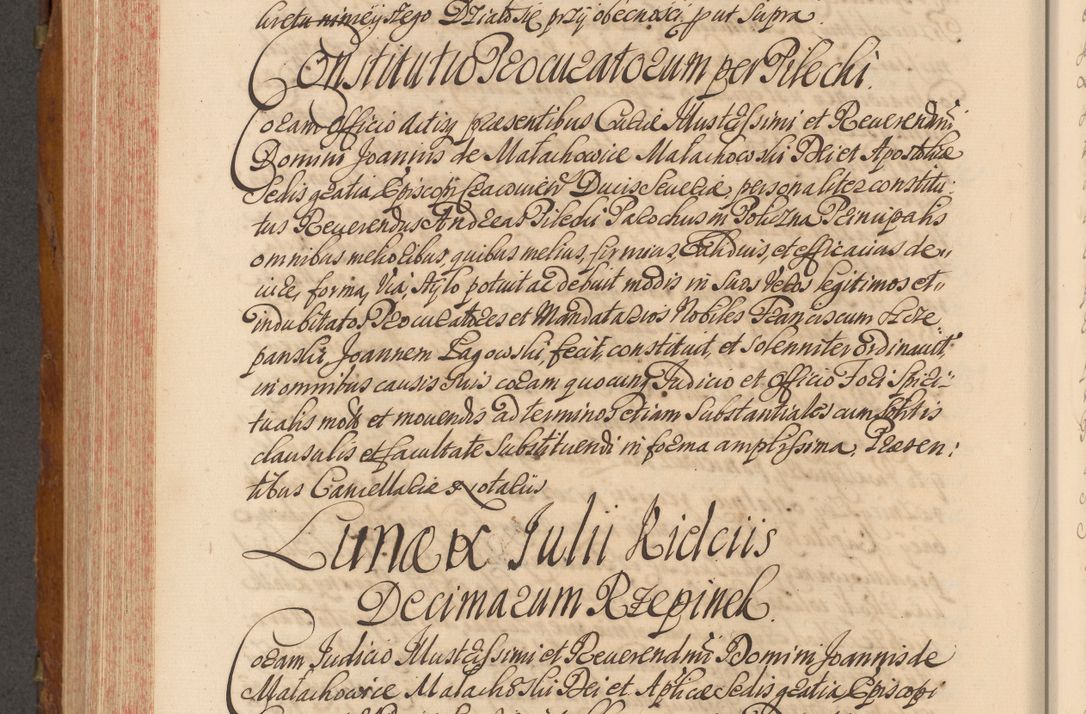 nimeyszego Działo się przy obecności, put Supra.
Constitutio Procuratorum per Pilechi.
Coram Officio Actisq praesentibus Curiae Illustrissimi et Reuerendmi
Domini Joannis de Małachowice Małachowski Dei et Apostolicae
Sedis gratia Episcopi Cracovien Ducis Seueriae, personaliter constitu-
tus Reuerendus Andreas Pilechi Parochus in Policzna Principalis
omnibus melioribus, quibus melius, firmius, Validius, et efficacius de-
iure, forma, Via, Stylo potuit ac debuit modis in suos Veros legitimos et
indubitatos Procuratores et Mandatarios Nobiles Franciscum
panski Joannem Łagowski, fecit, constituit, et Solenniter ordinauit,
in omnibus causis suis coram quocunq Judicio et Officio Fori Spiri-
tualis motis et mouendis ad terminos etiam Substantiales cum solitis
clausulis et facultate Substituendi in forma amplissima, Praesen:
tibus Cancellariae Notariis
Lunae IX Julii Kielciis
Decimarum Rzepinek.
Coram Judicio Illustrissimi et Reuerendmi Domini Joannis de
Małachowice Małachowski Dei et Aplicae Sedis gratia, Episcopi